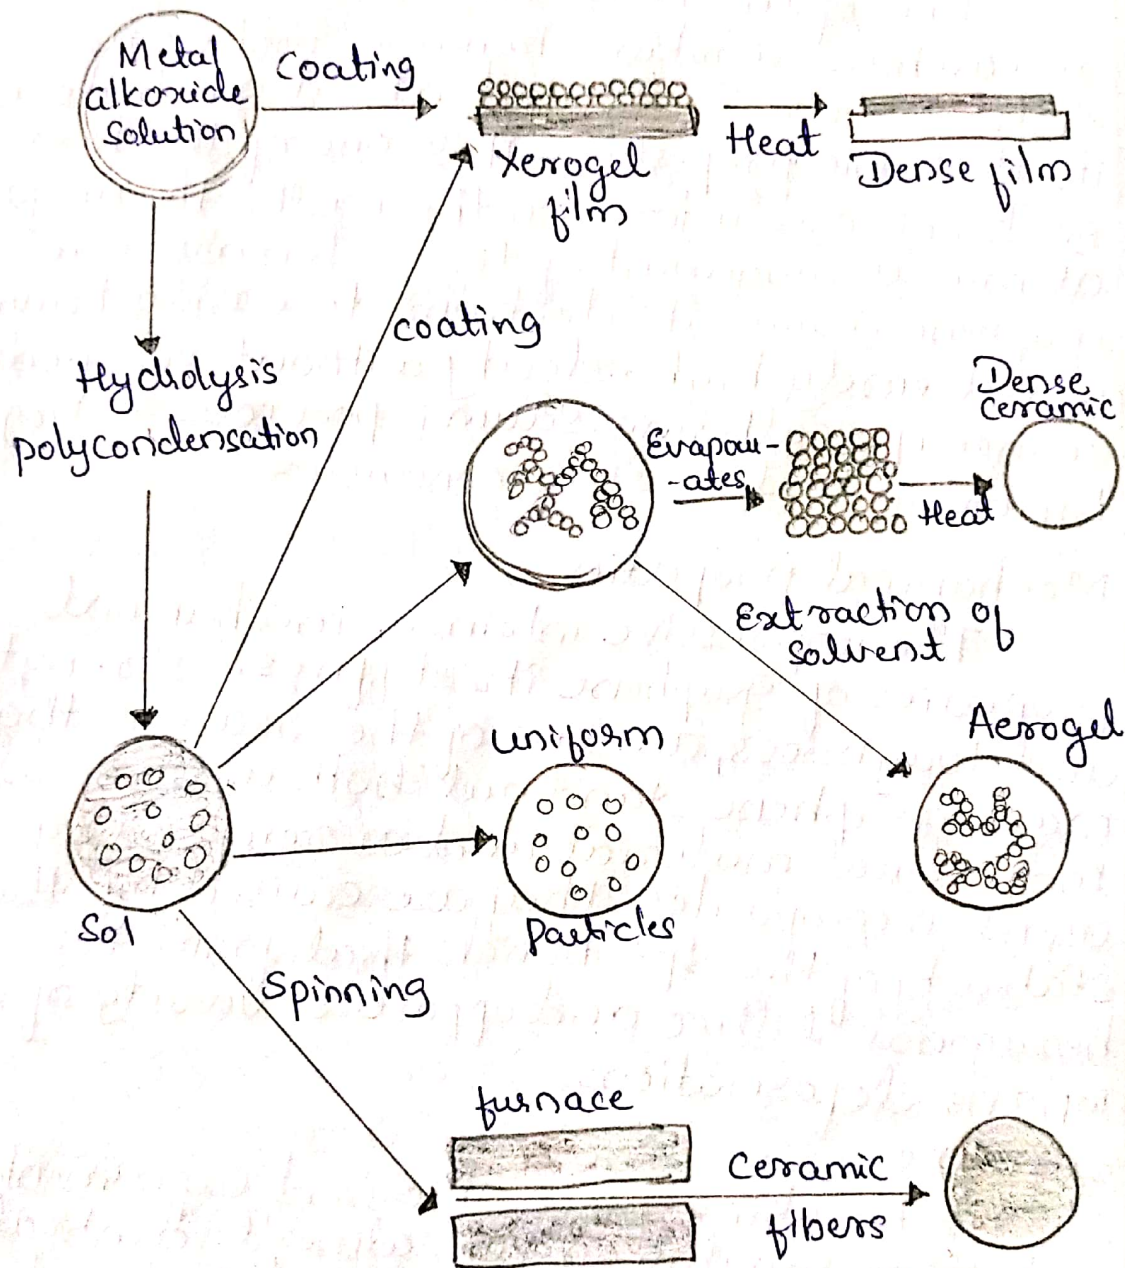 Metal
alkoxide
Solution
Coating
Xerogel
film
Heat
Dense film
coating
Hydrolysis
polycondensation
Evapour-
-ates
Heat
Dense
ceramic
Extraction of
solvent
Aerogel
uniform
particles
Sol
Spinning
furnace
Ceramic
fibers